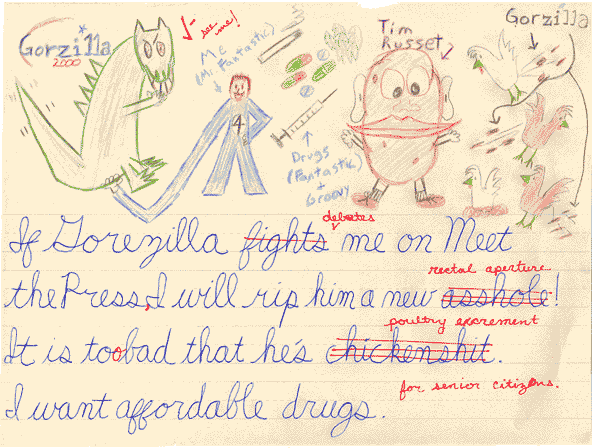 Gorzilla
2000
see me!
ME
(Mr. Fantastic)
Drugs
(Fantastic)
+
Groovy
4
Tim
Russet
Gorzilla
debates
If Gorezilla fights me on Meet
rectal aperture
the Press, I will rip him a new asshole!
poultry excrement
It is toobad that he's chickenshit.
for senior citizens.
I want affordable drugs.